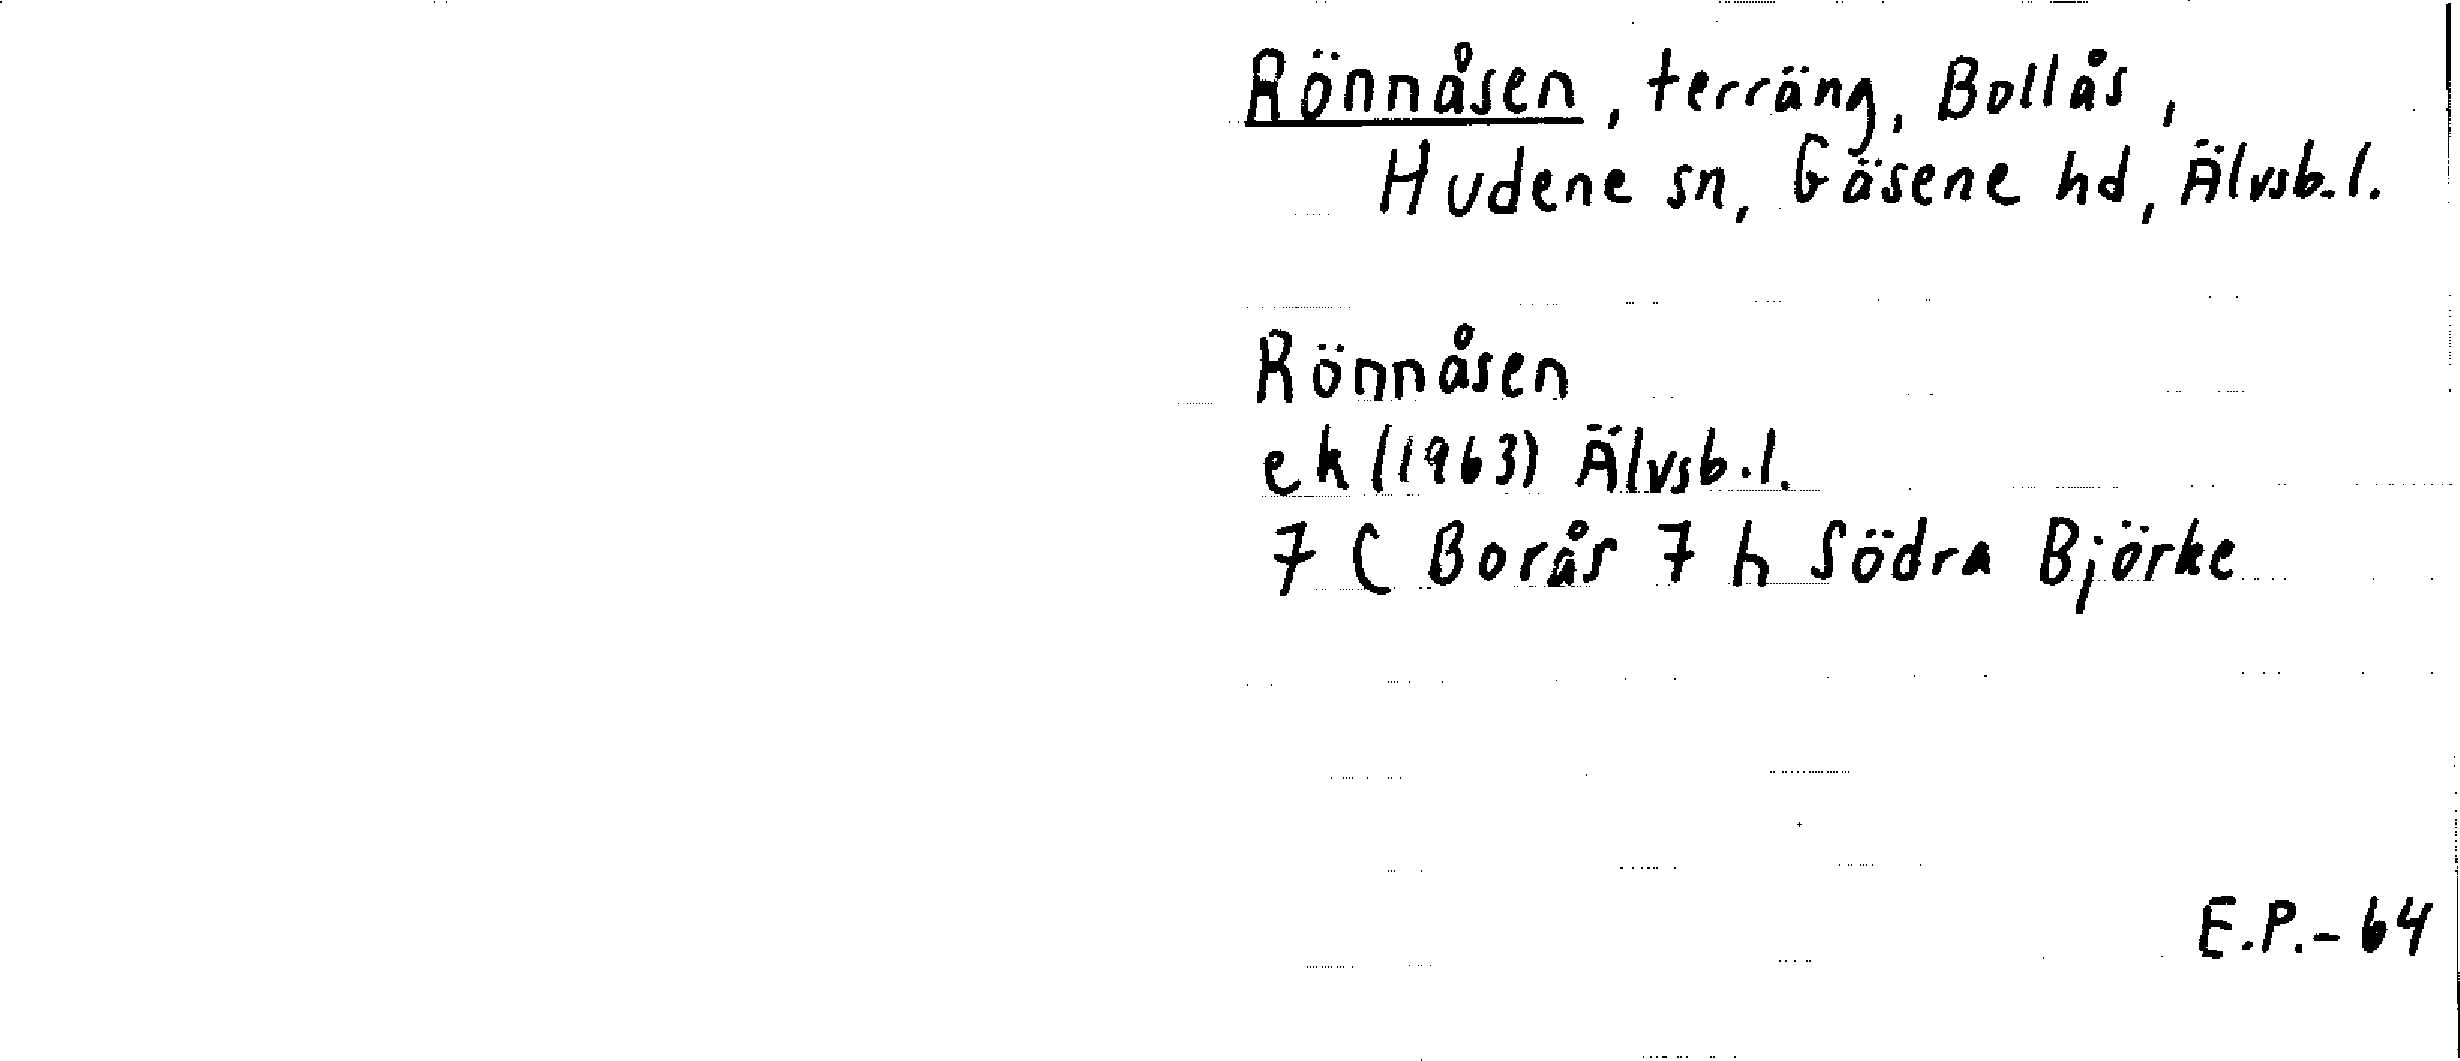 Rönnåsen, terräng, Bollås,
Hudene sn, Gäsene hd, Älvsb.l.
Rönnåsen
ek (1963) Älvsb.l.
7 C Borås 7 h Södra Björke
E.P.-64